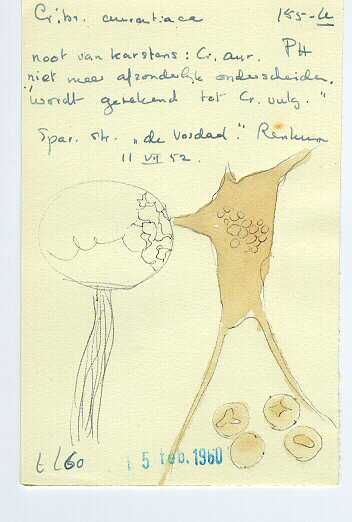 Cribr. aurantiaca 155-4
noot van Karstens: Cr. aur. PH
niet meer afzonderlijk onderscheiden.
"wordt gerekend tot Cr. vulg."
Spar. str. „de Vosdal." Renkum
11 VII 52.
t/60 15 feb. 1960